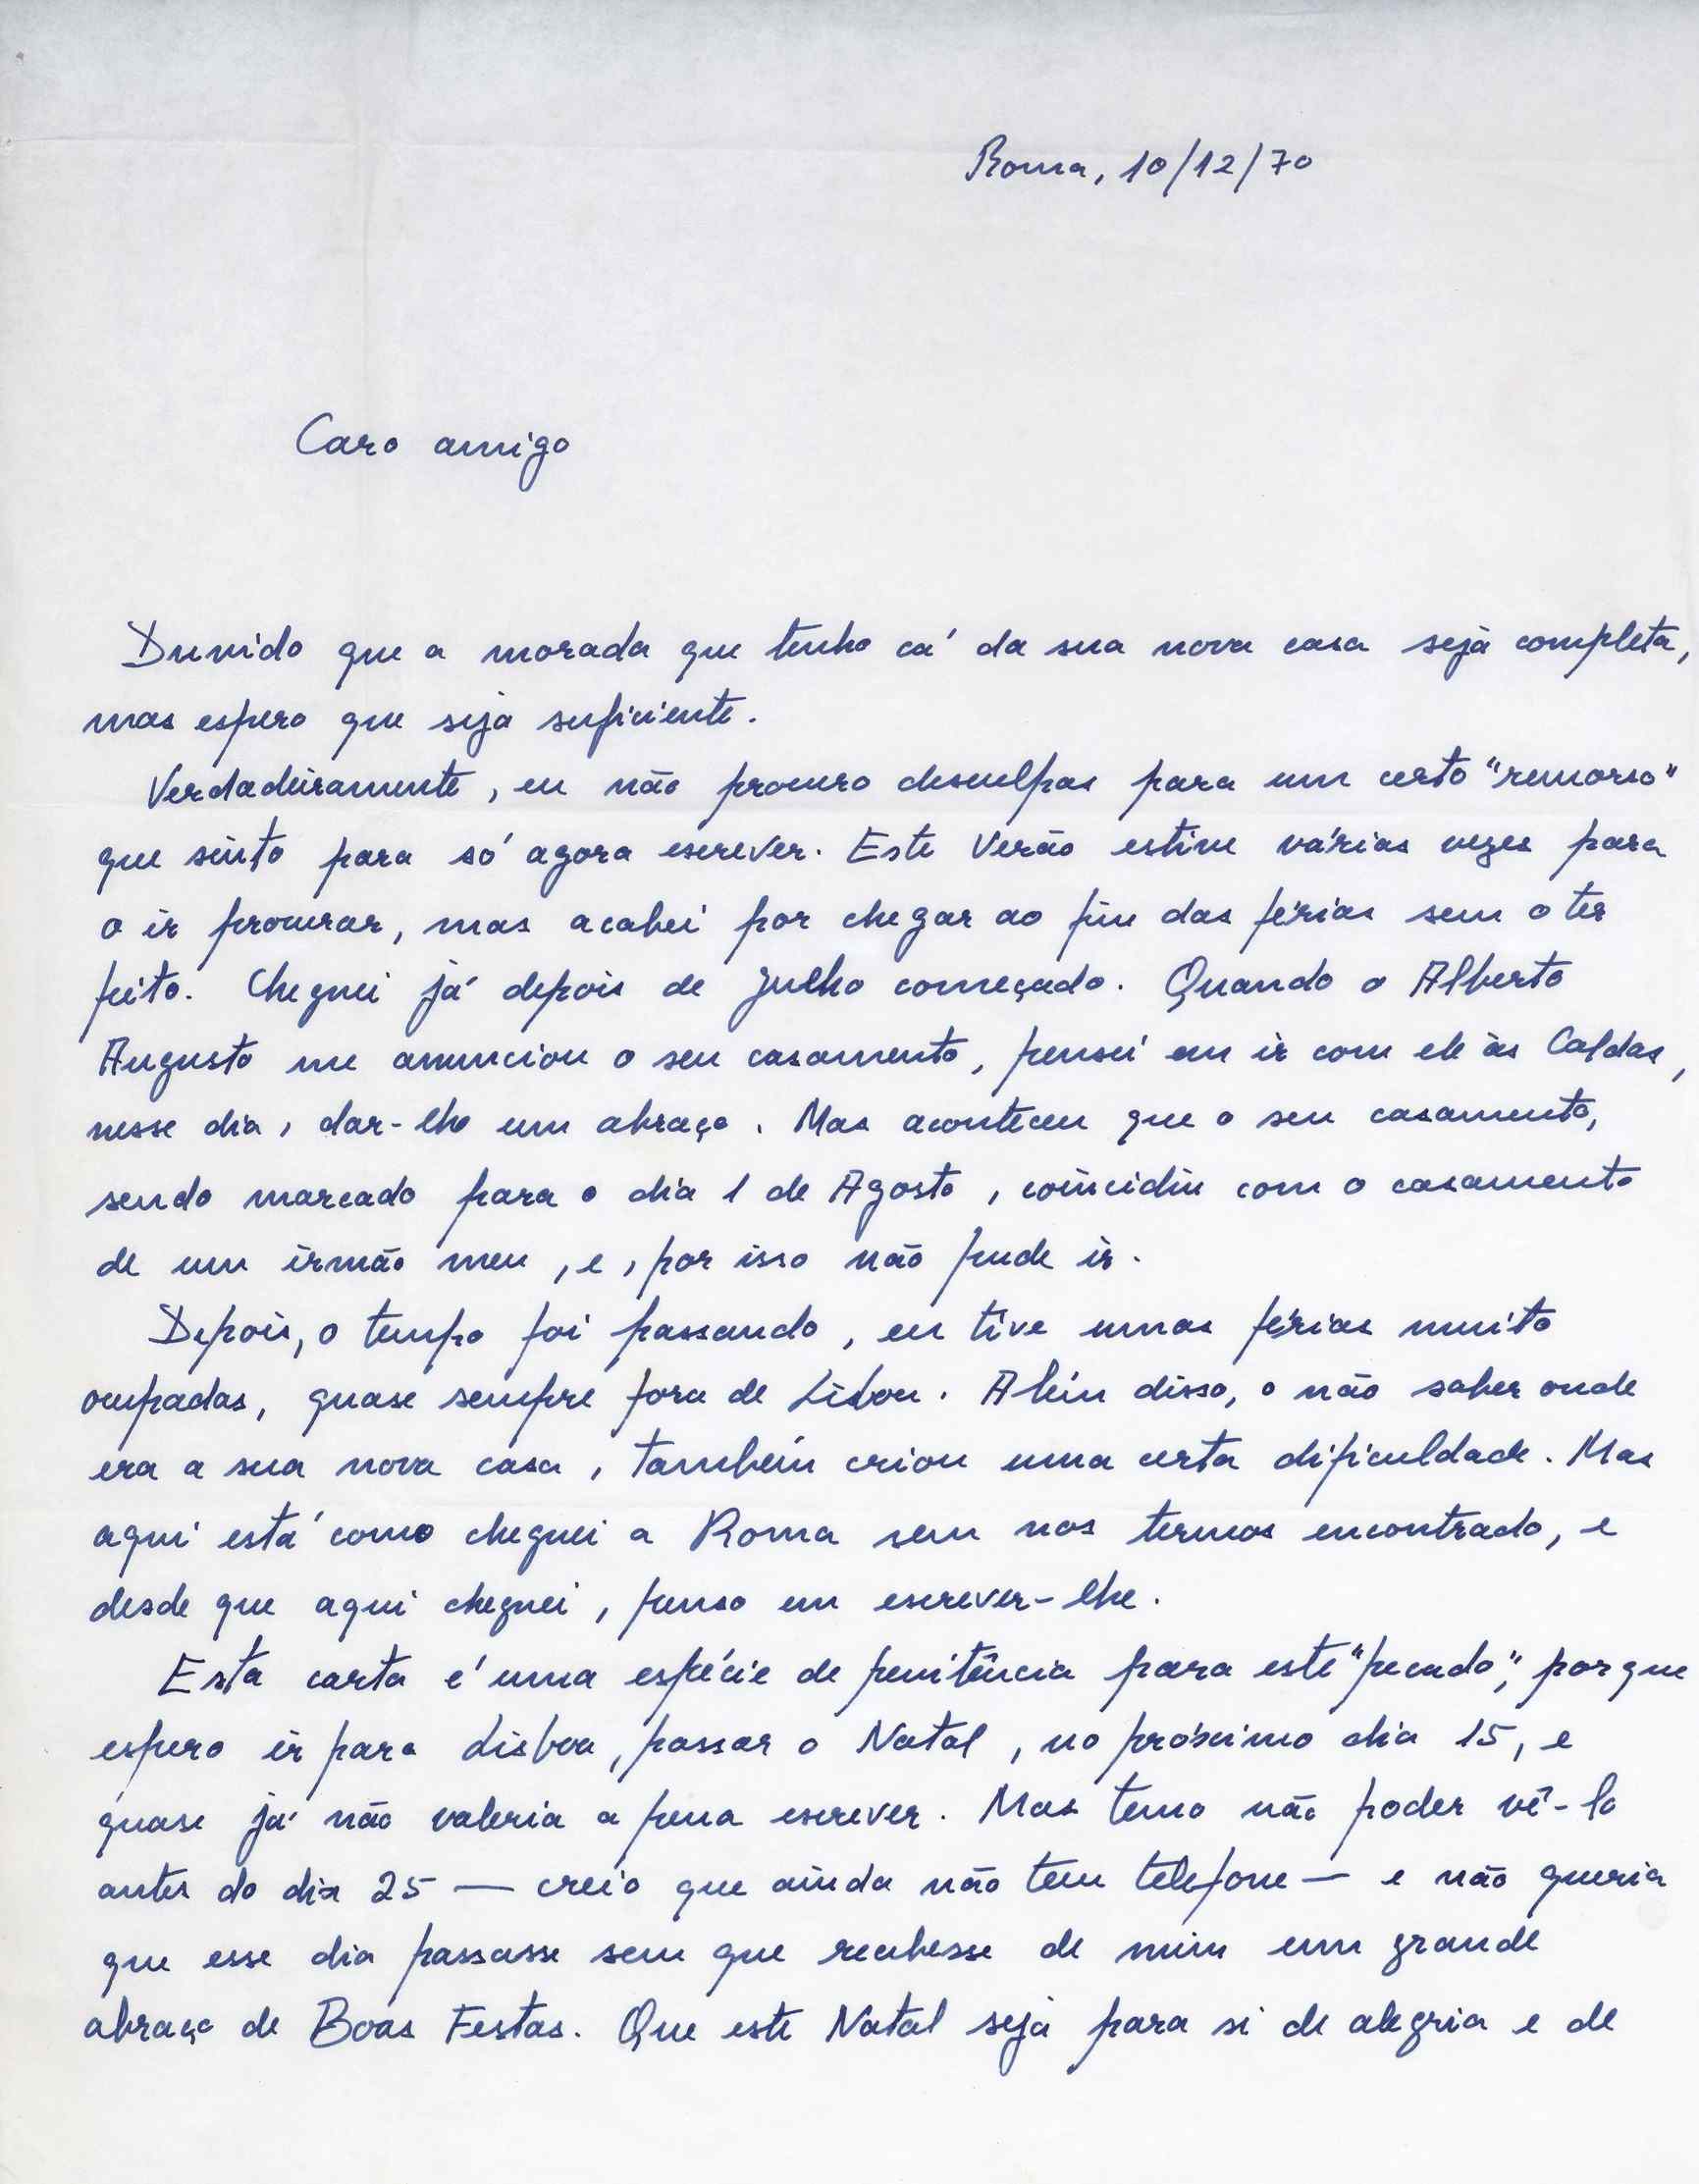 Roma, 10/12/70
Caro amigo
Duvido que a morada que tenho cá da sua nova casa seja completa,
mas espero que seja suficiente.
Verdadeiramente, eu não procuro desculpas para um certo "remorso"
que sinto para só agora escrever. Este Verão estive várias vezes para
o ir procurar, mas acabei por chegar ao fim das férias sem o ter
feito. Cheguei já depois de Julho começado. Quando o Alberto
Augusto me anunciou o seu casamento, pensei em ir com ele às Caldas,
nesse dia, dar-lhe um abraço. Mas aconteceu que o seu casamento,
sendo marcado para o dia 1 de Agosto, coincidiu com o casamento
de um irmão meu, e, por isso não pude ir.
Depois, o tempo foi passando, eu tive umas férias muito
ocupadas, quase sempre fora de Lisboa. Além disso, o não saber onde
era a sua nova casa, também criou uma certa dificuldade. Mas
aqui está como cheguei a Roma sem nos termos encontrado, e
desde que aqui cheguei, penso em escrever-lhe.
Esta carta é uma espécie de penitência para este "pecado", porque
espero ir para Lisboa, passar o Natal, no próximo dia 15, e
quase já não valeria a pena escrever. Mas temo não poder vê-lo
antes do dia 25 — creio que ainda não tem telefone — e não queria
que esse dia passasse sem que recebesse de mim um grande
abraço de Boas Festas. Que este Natal seja para si de alegria e de